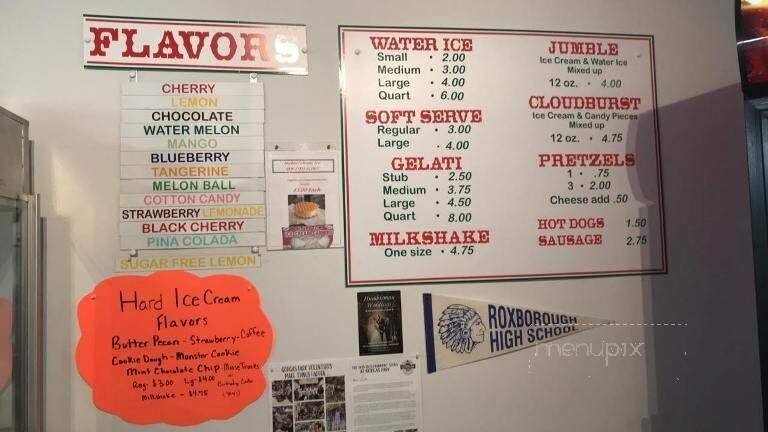 FLAVORS
CHERRY
LEMON
CHOCOLATE
WATER MELON
MANGO
BLUEBERRY
TANGERINE
MELON BALL
COTTON CANDY
STRAWBERRY LEMONADE
BLACK CHERRY
PINA COLADA
SUGAR FREE LEMON
WATER ICE
Small • 2.00
Medium • 3.00
Large • 4.00
Quart • 6.00
SOFT SERVE
Regular • 3.00
Large • 4.00
GELATI
Stub • 2.50
Medium • 3.75
Large • 4.50
Quart • 8.00
MILKSHAKE
One size • 4.75
JUMBLE
Ice Cream & Water Ice
Mixed up
12 oz. • 4.00
CLOUDBURST
Ice Cream & Candy Pieces
Mixed up
12 oz. • 4.75
PRETZELS
1 • .75
3 • 2.00
Cheese add .50
HOT DOGS 1.50
SAUSAGE 2.75
Hard Ice Cream
Flavors
Butter Pecan - Strawberry - Coffee
Cookie Dough - Monster Cookie
Mint Chocolate Chip - Moose Tracks
Reg: $3.00 Lg: $4.00 - Birthday Cake
Milkshake - $4.75
ROXBOROUGH
HIGH SCHOOL
GORGAS PARK VOLUNTEERS
MAKE THINGS HAPPEN
menupix